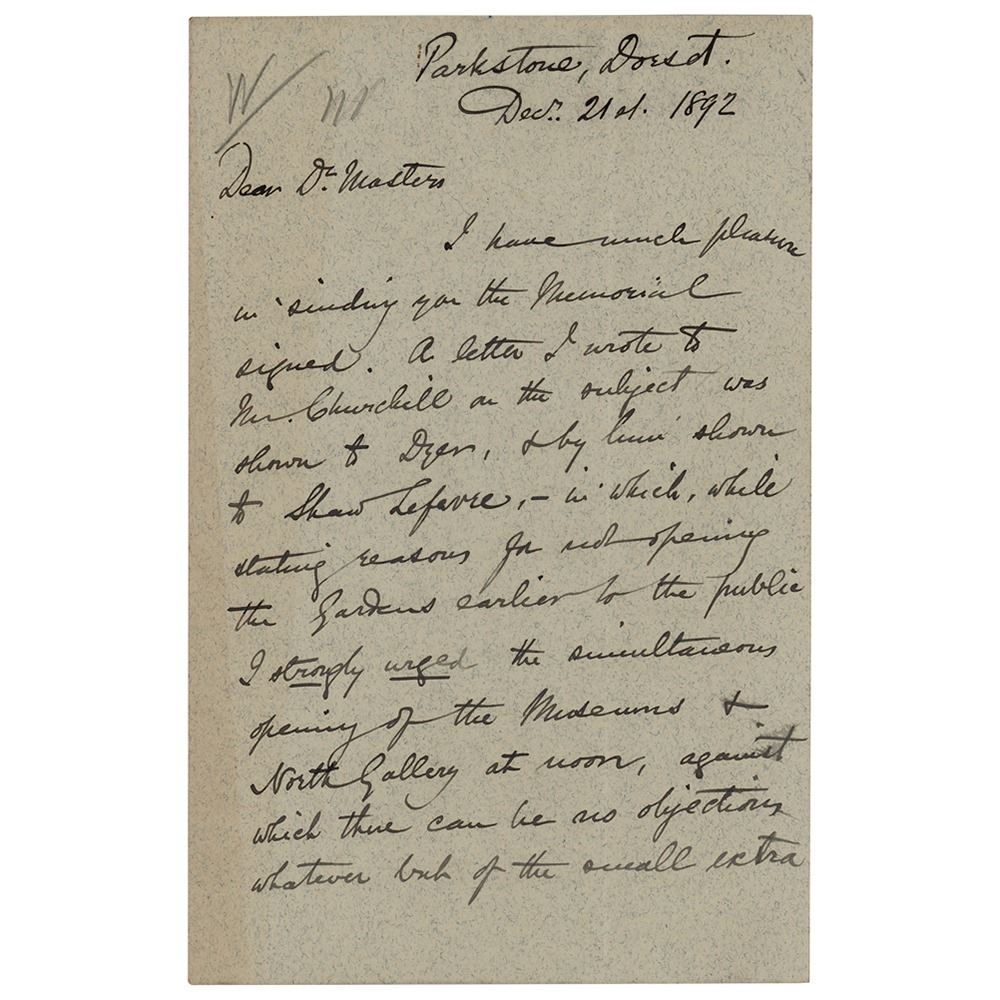 Parkstone, Dorset.
Decr. 21st. 1892
Dear Dr. Masters
I have much pleasure
in sending you the Memorial
signed. A letter I wrote to
Mr. Churchill on the subject was
shown to Dyer, & by him shown
to Shaw Lefevre, - in which, while
stating reasons for not opening
the Gardens earlier to the public
I strongly urged the simultaneous
opening of the Museums &
North Gallery at noon, against
which there can be no objections
whatever but of the small extra